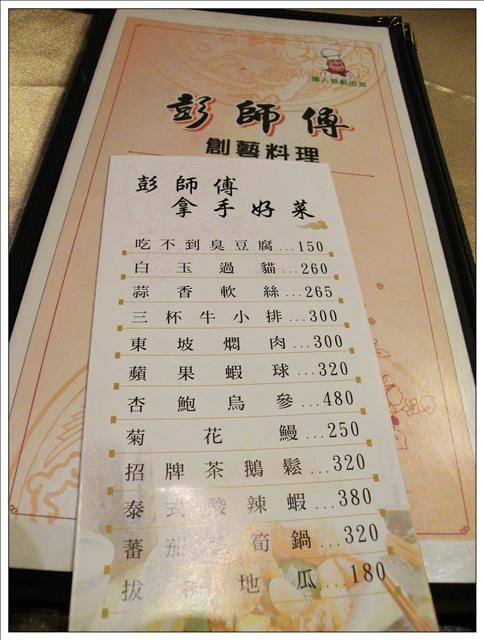 彭師傅
創藝料理
彭師傅
拿手好菜
吃不到臭豆腐...150
白玉過貓...260
蒜香軟絲...265
三杯牛小排...300
東坡燜肉...300
蘋果蝦球...320
杏鮑烏參...480
菊花鰻...250
招牌茶鵝鬆...320
泰式酸辣蝦...380
蕃茄筍鍋...320
拔絲地瓜...180